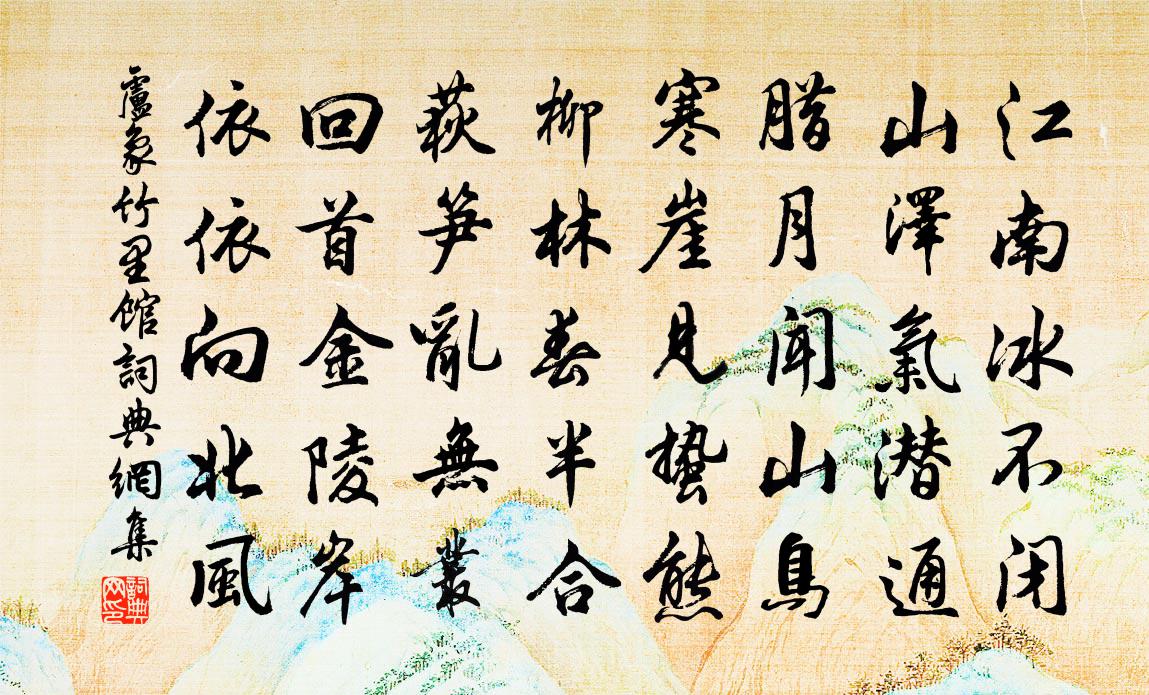 江南冰不闭
山澤氣潜通
腊月闻山鳥
寒崖見蟄熊
柳林春半合
荻笋亂無叢
回首金陵岸
依依向北風
盧象竹里館詞典網集
詞典網印